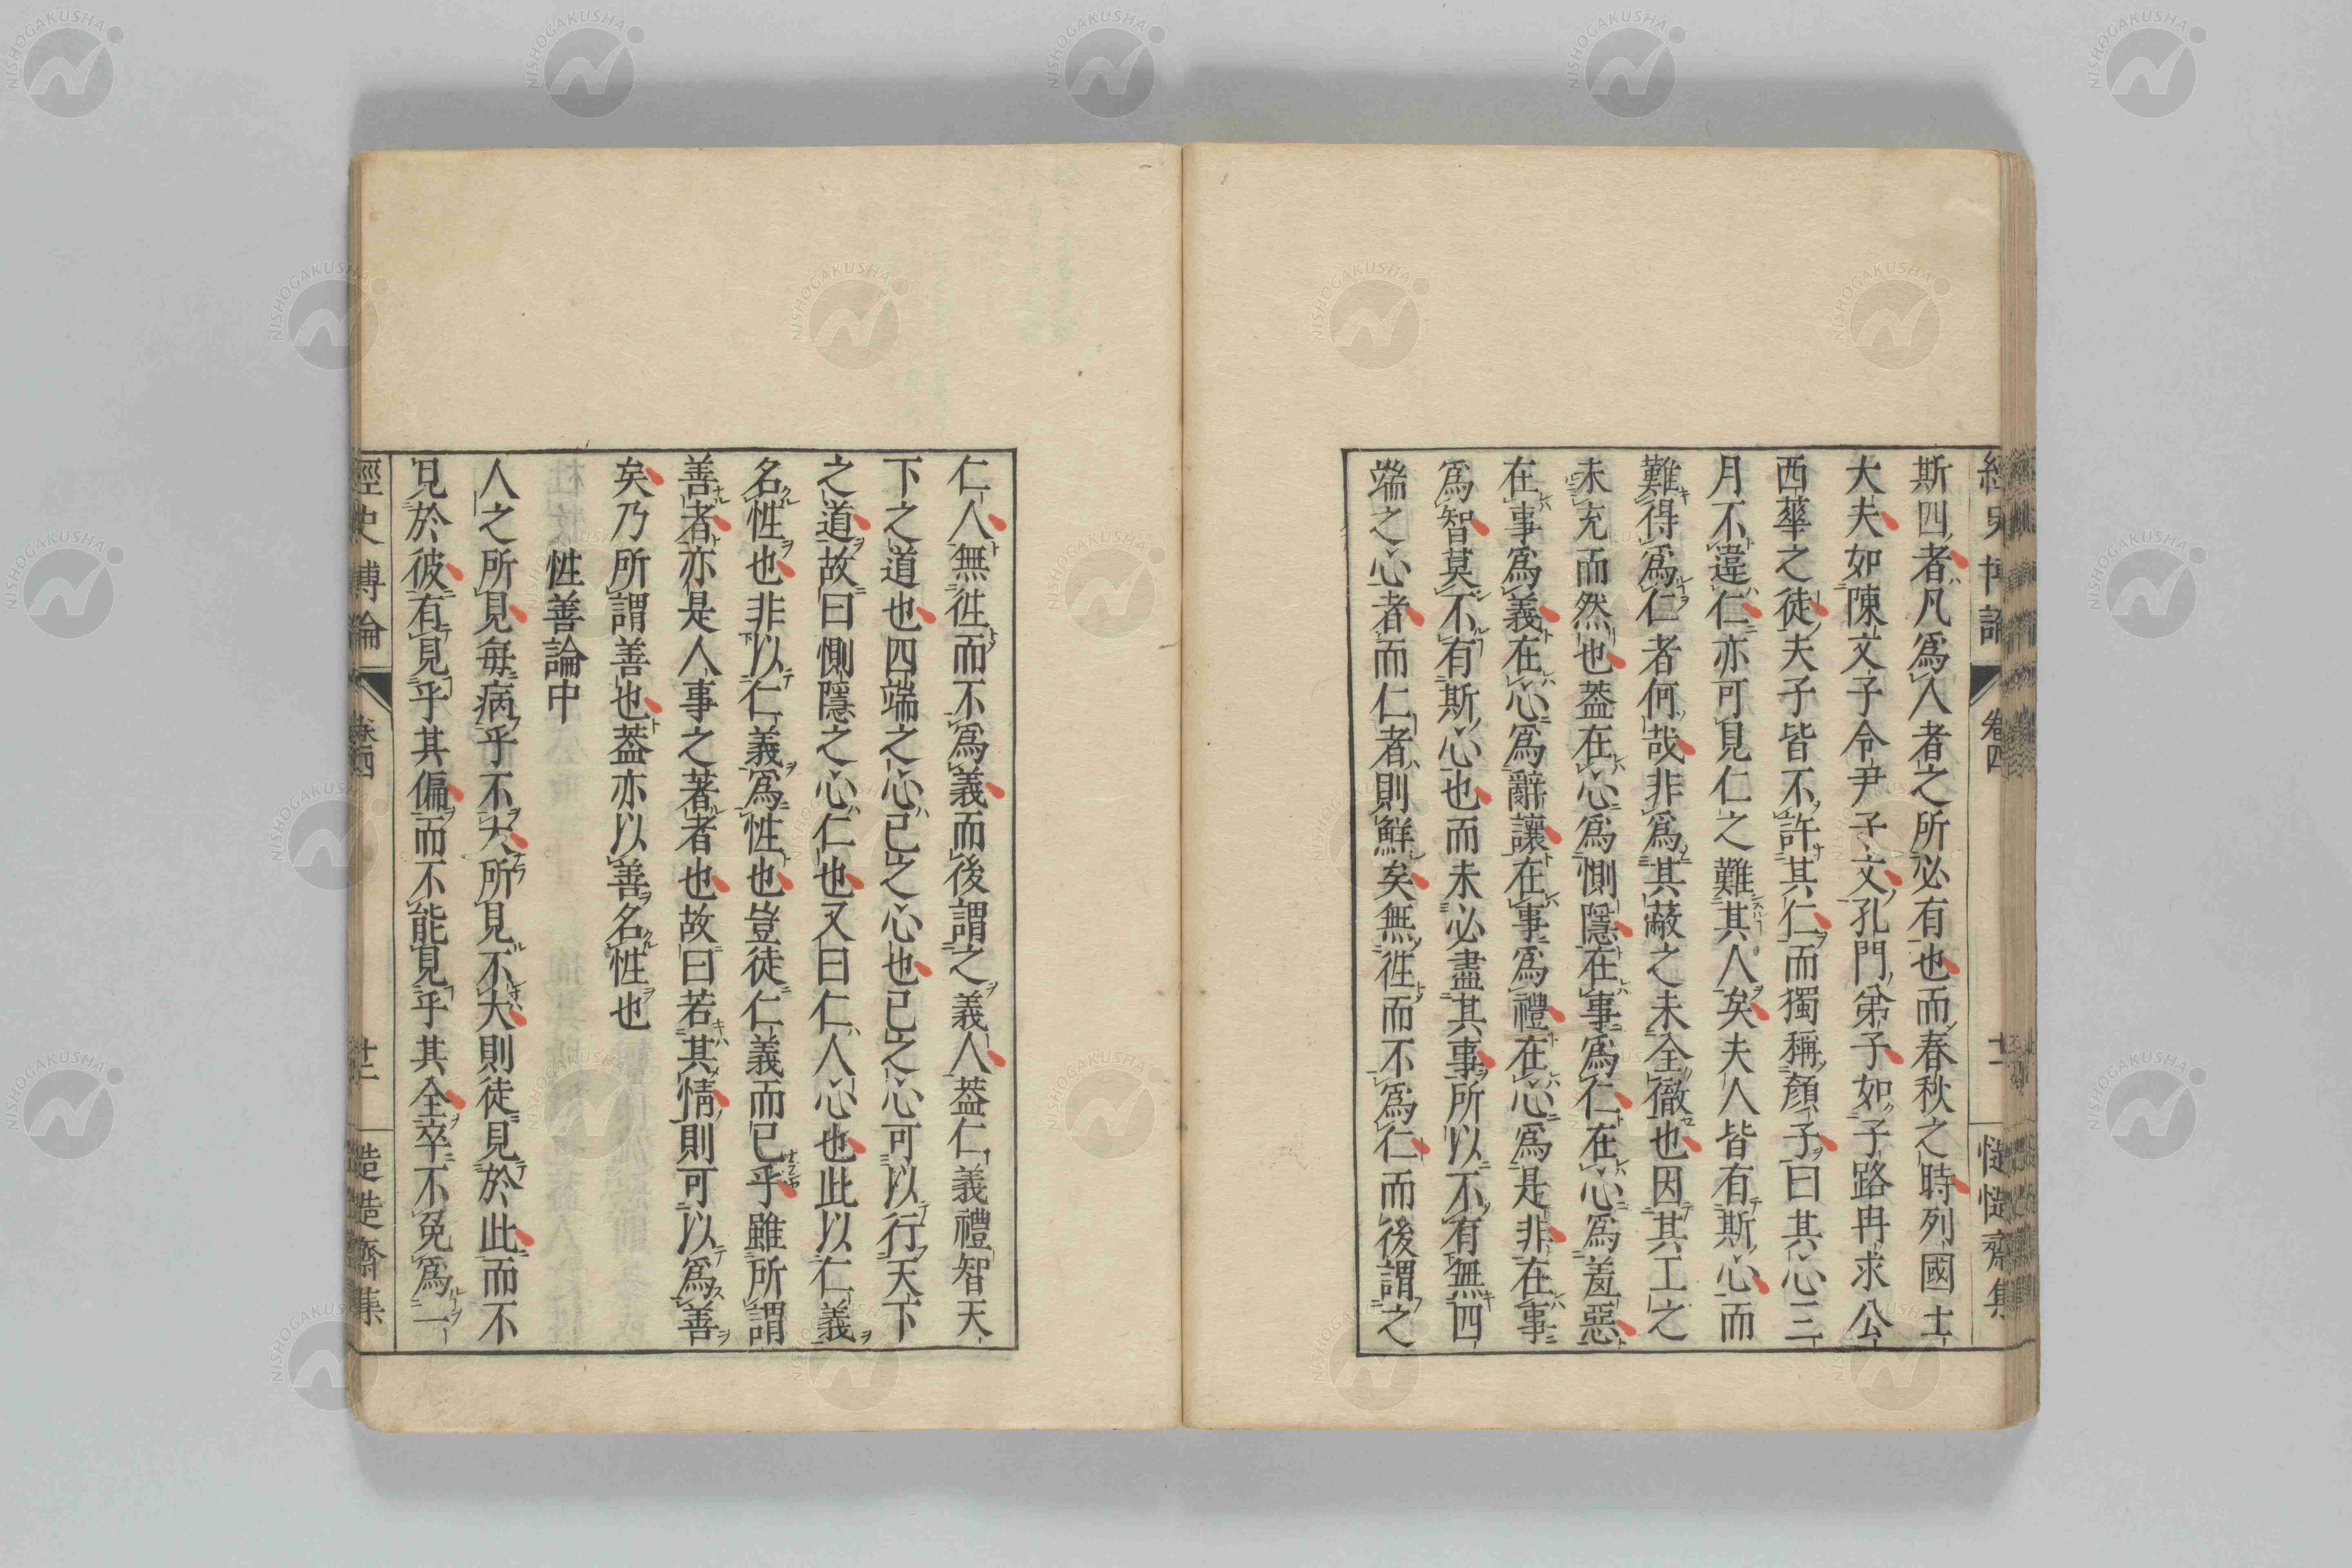 斯四者凡爲人者之所必有也而春秋之時列國士
大夫如陳文子令尹子文孔門弟子如子路冉求公
西華之徒夫子皆不許其仁而獨稱顏子曰其心三
月不違仁亦可見仁之難其人矣夫人皆有斯心而
難得爲仁者何哉非爲其蔽之未全徹也因其工之
未充而然也葢在心爲惻隱在事爲仁在心爲羞惡
在事爲義在心爲辭讓在事爲禮在心爲是非在事
爲智莫不有斯心也而未必盡其事所以不有無四
端之心者而仁者則鮮矣無徃而不爲仁而後謂之
仁人無徃而不爲義而後謂之義人葢仁義禮智天
下之道也四端之心已之心也已之心可以行天下
之道故曰惻隱之心仁也又曰仁人心也此以仁義
名性也非以仁義爲性也豈徒仁義而已乎雖所謂
善者亦是人事之著者也故曰若其情則可以爲善
矣乃所謂善也葢亦以善名性也
性善論中
人之所見每病乎不大所見不大則徒見於此而不
見於彼有見乎其偏而不能見乎其全卒不免爲一
經史博論
卷四
十二
造造齋集